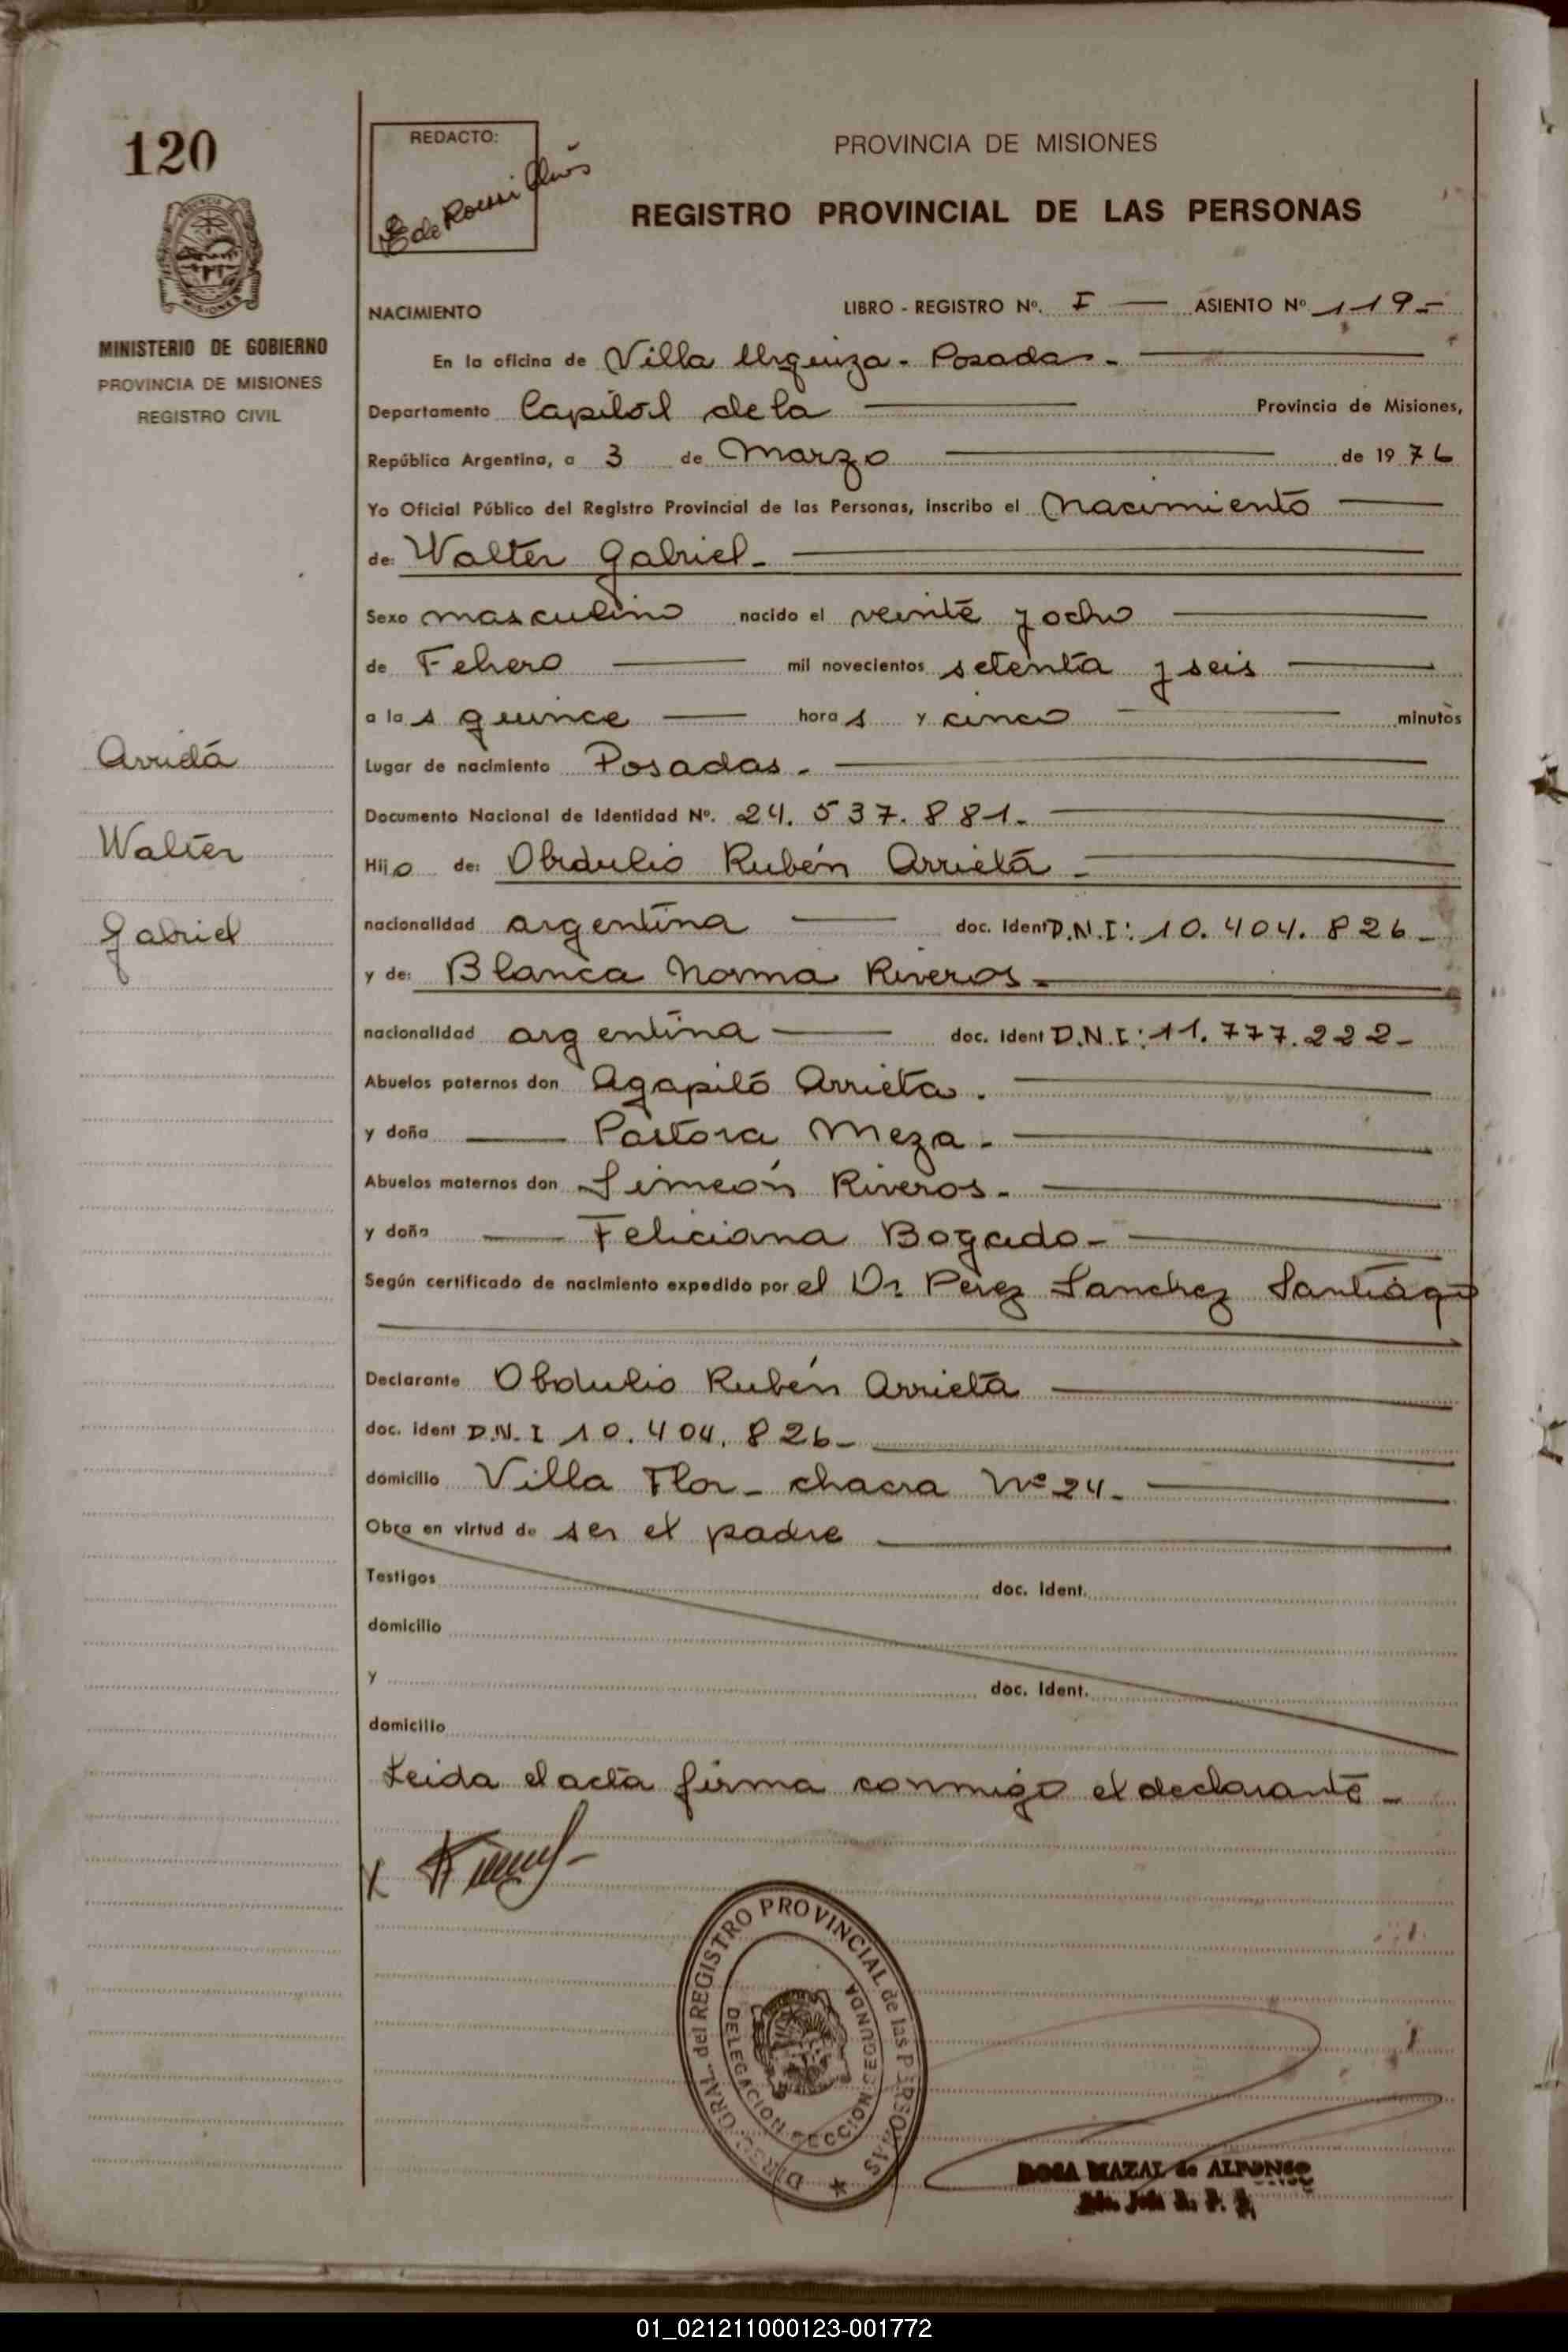 120
MINISTERIO DE GOBIERNO
PROVINCIA DE MISIONES
REGISTRO CIVIL
Arrietá
Walter
Gabriel
REDACTO:
PROVINCIA DE MISIONES
REGISTRO PROVINCIAL DE LAS PERSONAS
NACIMIENTO LIBRO - REGISTRO Nº. I — ASIENTO Nº 119.-
En la oficina de Villa Urquiza - Posadas.-
Departamento Capital de la Provincia de Misiones,
República Argentina, a 3 de Marzo de 1976
Yo Oficial Público del Registro Provincial de las Personas, inscribo el Nacimiento
de: Walter Gabriel.-
Sexo masculino nacido el veinte y ocho
de Febrero mil novecientos setenta y seis
a las quince horas y cinco minutos
Lugar de nacimiento Posadas.-
Documento Nacional de Identidad Nº. 24.537.881.-
Hijo de: Obdulio Rubén Arrieta.-
nacionalidad argentina doc. Ident D.N.I: 10.404.826.-
y de: Blanca Norma Riveros.-
nacionalidad argentina doc. Ident D.N.I: 11.777.222.-
Abuelos paternos don Agapito Arrieta.
y doña Pastora Meza.-
Abuelos maternos don Simeón Riveros.-
y doña Feliciana Bogado.-
Según certificado de nacimiento expedido por el Dr Pérez Sanchez Santiago
Declarante Obdulio Rubén Arrieta
doc. Ident D.N.I 10.404.826.-
domicilio Villa Flor - chacra Nº 24.-
Obra en virtud de ser el padre
Testigos doc. Ident.
domicilio
y doc. Ident.
domicilio
Leida el acta firma conmigo el declarante.-
DIREC. GRAL. del REGISTRO PROVINCIAL de las PERSONAS
DELEGACION SECCION SEGUNDA
ROSA MAZAL de ALFONSO
01_021211000123-001772